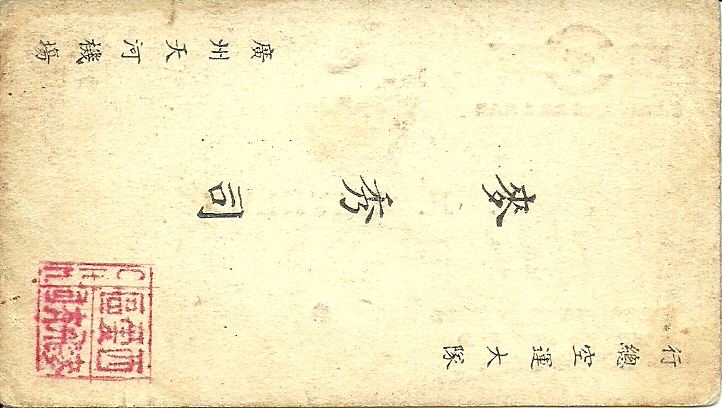 行總空運大隊
麥秀司
廣州天河機場